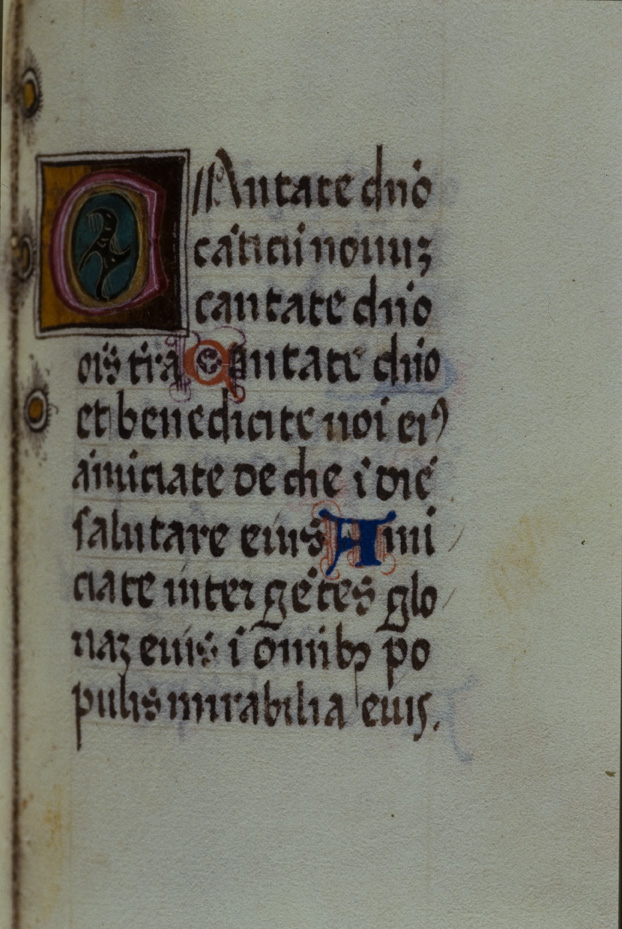 CAntate dn̄o
cāticū nouuꝫ
cantate dn̄o
oīs trā Cantate dn̄o
et benedicite noī eiꝰ
ānūciate de die ī diē
salutare eius Anū
ciate inter gētes glo
riaꝫ eius ī om̄ibꝫ po
pulis mirabilia eius.